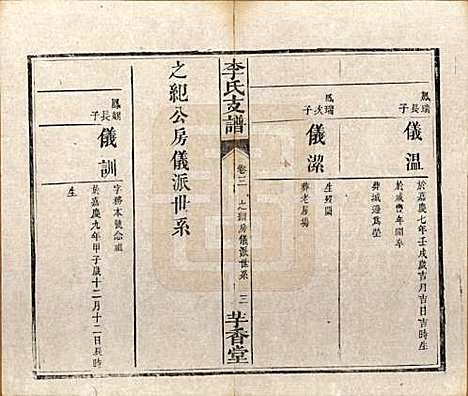 鳳瑞長子
儀温
於嘉慶七年壬戌歲吉月吉日吉時生
於咸豐年間卒
葬城邊為塋
鳳瑞次子
儀潔
生歿闕
葬老房場
李氏支譜
卷三
房儀派世系
三
芋香堂
之紀公房儀派世系
長子
儀訓
字務本號念祖
於嘉慶九年甲子歲十二月十二日辰時
生